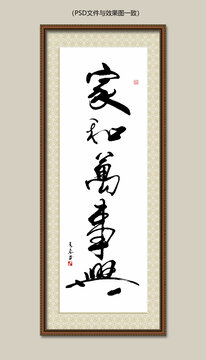 （PSD文件与效果图一致）
家和萬事興